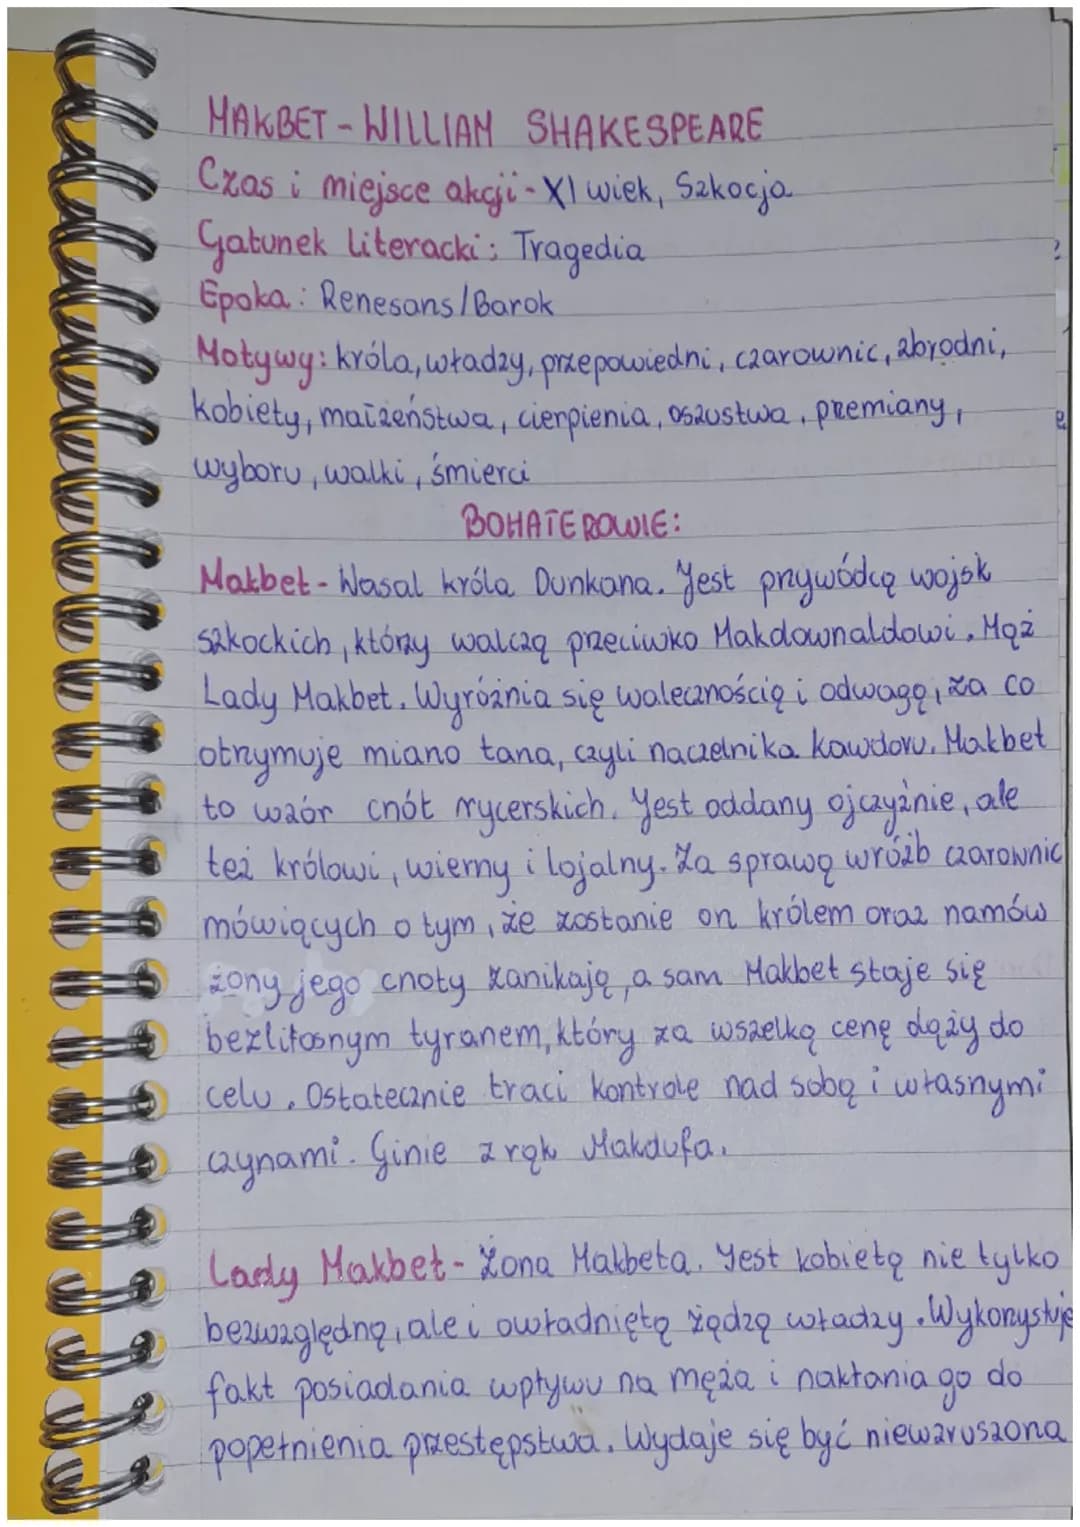 MAKBET - WILLIAM SHAKESPEARE
Czas i miejsce akcji - XI wiek, Szkocja
Gatunek literacki: Tragedia
Epoka: Renesans/Barok
Motywy: króla, władzy, przepowiedni, czarownic, zbrodni,
kobiety, małżeństwa, cierpienia, oszustwa, przemiany,
wyboru, walki, śmierci
BOHATEROWIE:
Makbet - Wasal króla Dunkana. Jest przywódcą wojsk
szkockich, którzy walczą przeciwko Makdownaldowi. Mąż
Lady Makbet. Wyróżnia się walecznością i odwagą, za co
otrzymuje miano tana, czyli naczelnika Kawdoru. Makbet
to wzór cnót rycerskich. Jest oddany ojczyźnie, ale
też królowi, wierny i lojalny. Za sprawą wróżb czarownic
mówiących o tym, że zostanie on królem oraz namów
żony jego cnoty zanikają, a sam Makbet staje się
bezlitosnym tyranem, który za wszelką cenę dąży do
celu. Ostatecznie traci kontrole nad sobą i własnymi
czynami. Ginie z rąk Makdufa.
Lady Makbet - Żona Makbeta. Jest kobietą nie tylko
bezwzględną, ale i owładniętą żądzą władzy. Wykorzystuje
fakt posiadania wpływu na męża i nakłania go do
popełnienia przestępstwa. Wydaje się być niewzruszona